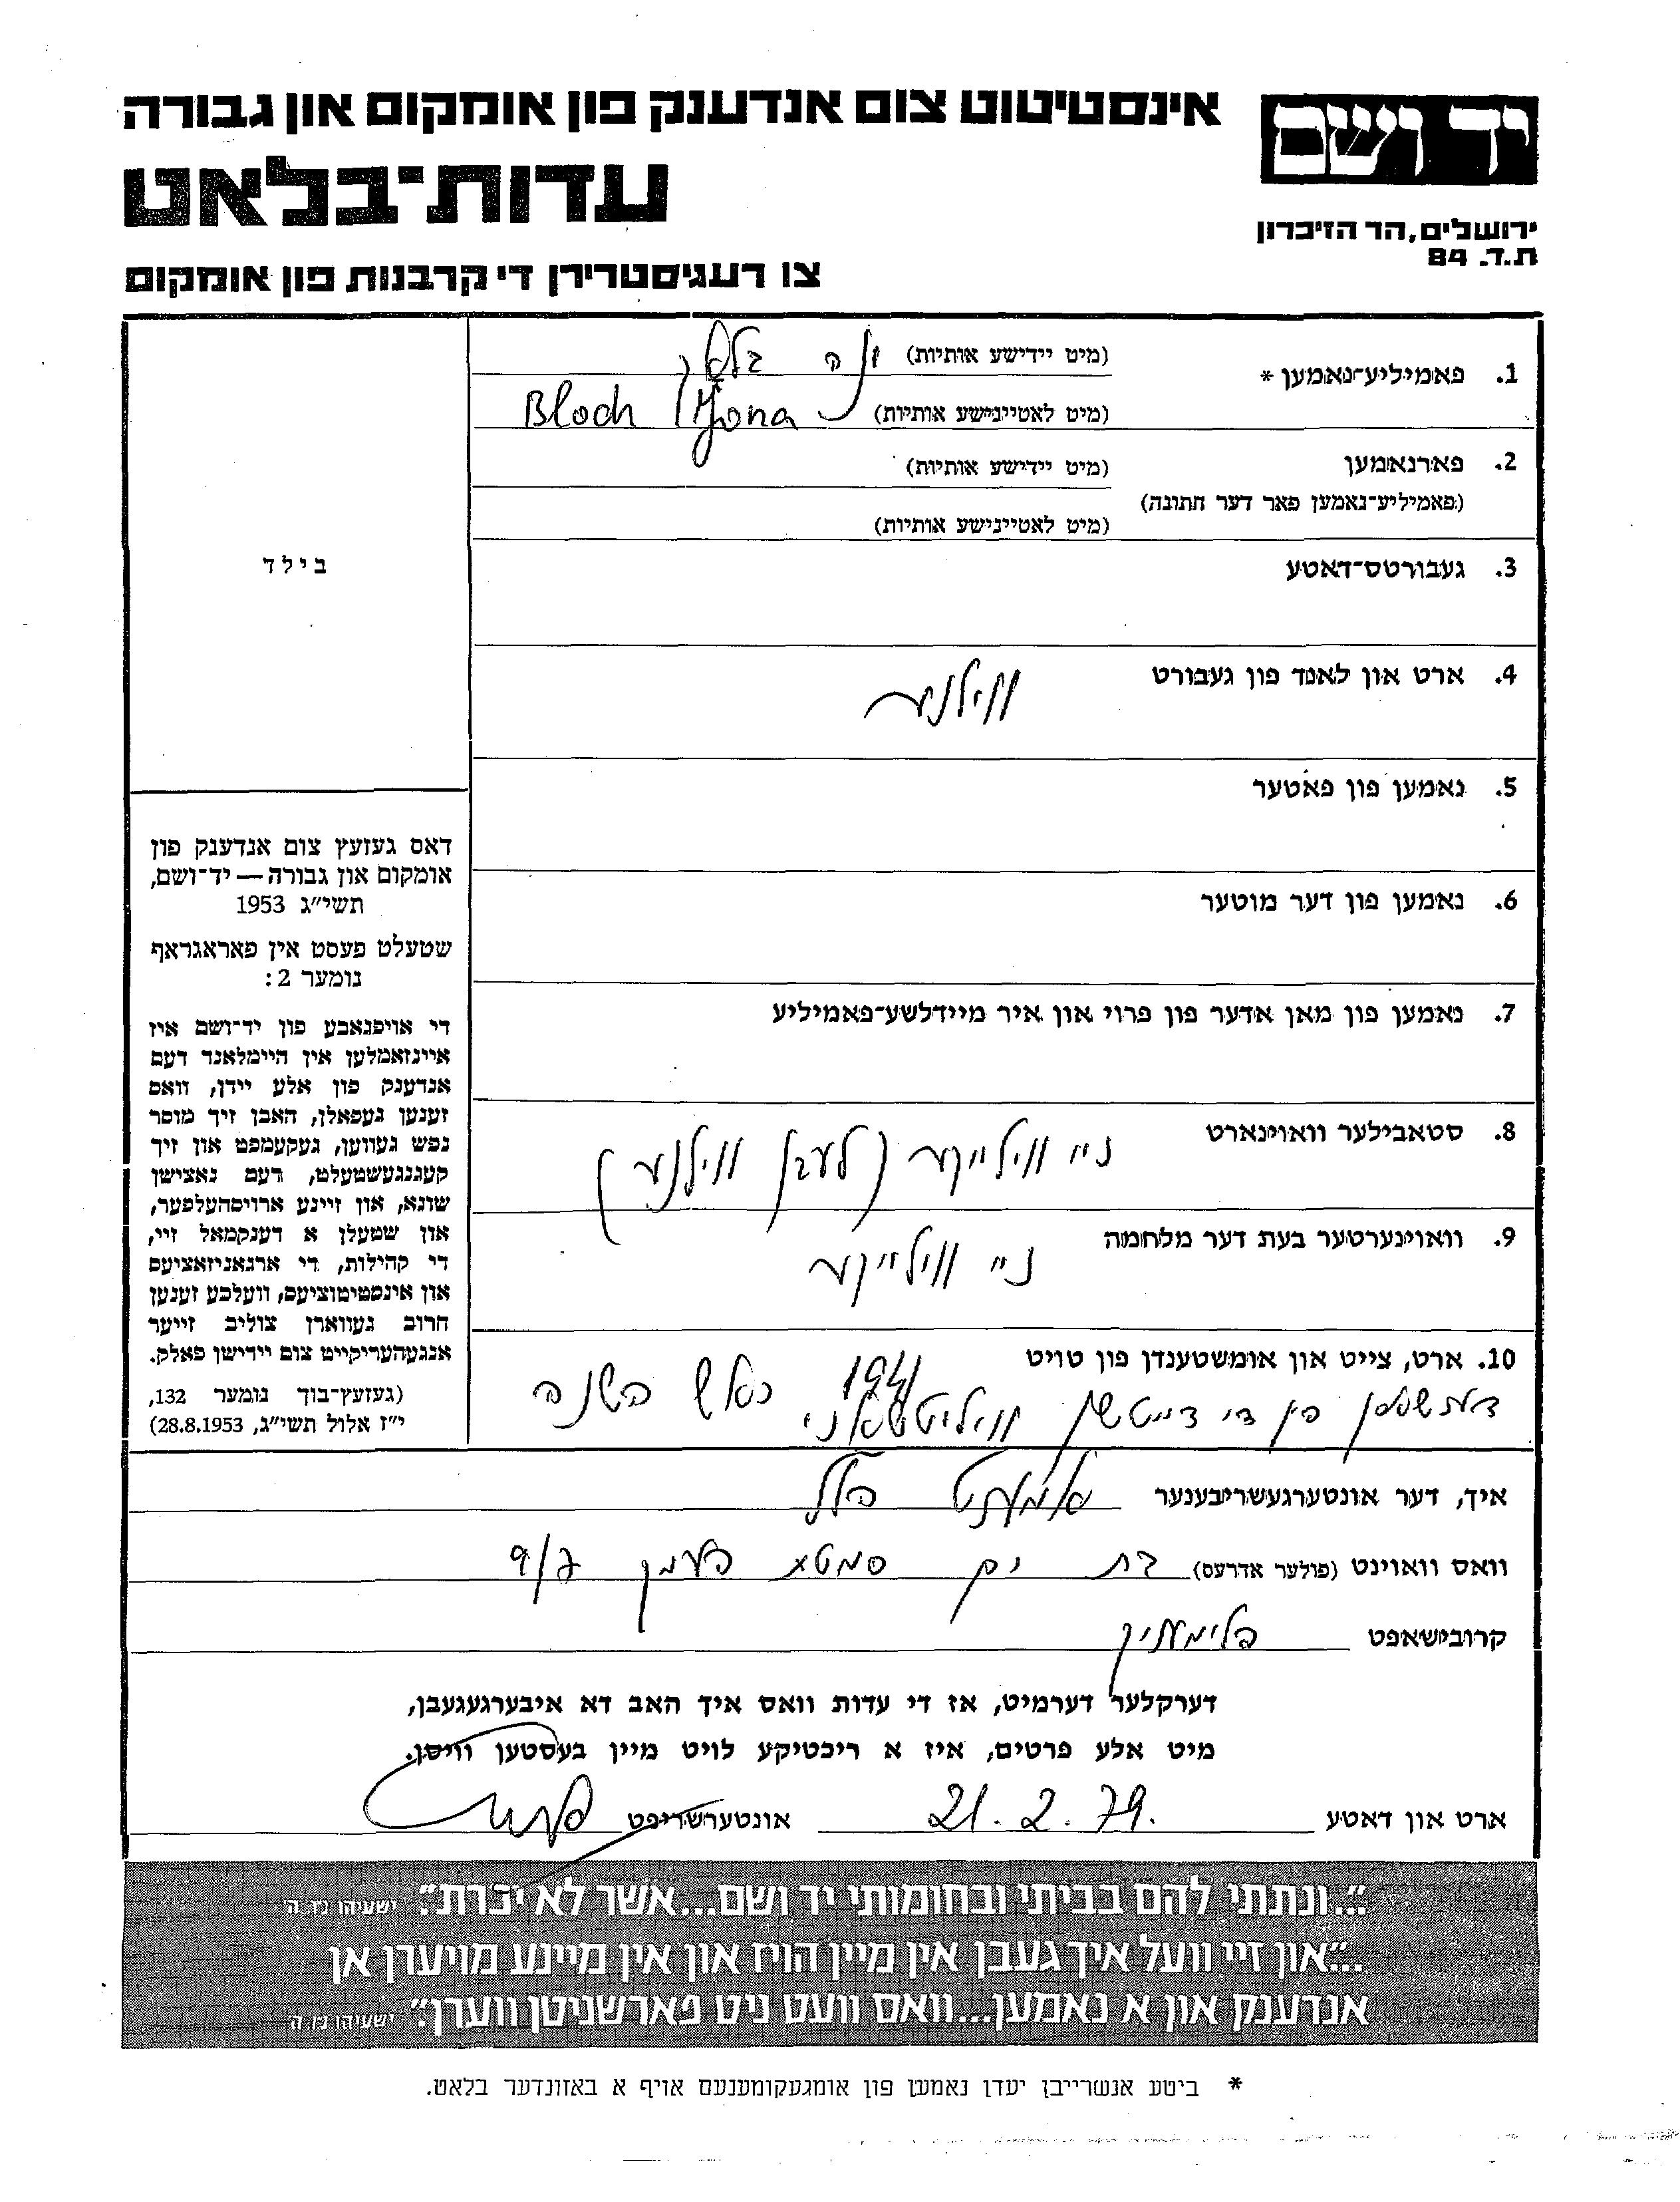 אינסטיטוט צום אנדענק פון אומקום און גבורה
יד ושם
עדות־בלאט
ירושלים, הר הזיכרון
ת.ד. 84
צו רעגיסטרירן די קרבנות פון אומקום
1. פאמיליע־נאמען *
(מיט יידישע אותיות) בלאך
(מיט לאטייינישע אותיות) Bloch Jona
2. פארנאמען (מיט יידישע אותיות)
(פאמיליע־נאמען פאר דער חתונה)
(מיט לאטייינישע אותיות)
בילד
3. געבורטס־דאטע
4. ארט און לאנד פון געבורט ווילנע
5. נאמען פון פאטער
6. נאמען פון דער מוטער
7. נאמען פון מאן אדער פון פרוי און איר מיידלשע־פאמיליע
8. סטאבילער וואוינארט ניי ווילייקע (לעבן ווילנע)
9. וואוינערטער בעת דער מלחמה ניי ווילייקע
10. ארט, צייט און אומשטענדן פון טויט 1941 ראש השנה
דערשאסן פון די דייטשן
דאס געזעץ צום אנדענק פון
אומקום און גבורה — יד־ושם,
תשי"ג 1953
שטעלט פעסט אין פאראגראף
נומער 2:
די אויפגאבע פון יד־ושם איז
איינזאמלען אין היימלאנד דעם
אנדענק פון אלע יידן, וואס
זענען געפאלן, האבן זיך מוסר
נפש געווען, געקעמפט און זיך
קעגנגעשטעלט, דעם נאצישן
שונא, און זיינע ארויסהעלפער,
און שטעלן א דענקמאל זיי,
די קהילות, די ארגאניזאציעס
און אינסטיטוציעס, וועלכע זענען
חרוב געווארן צוליב זייער
אנגעהעריקייט צום יידישן פאלק.
(געזעץ־בוך נומער 132,
י"ז אלול תשי"ג, 28.8.1953)
איך, דער אונטערגעשריבענער הלל
וואס וואוינט (פולער אדרעס) בת ים סמטא 9/7
קרובישאפט פלימעניק
דערקלער דערמיט, אז די עדות וואס איך האב דא איבערגעגעבן,
מיט אלע פרטים, איז א ריכטיקע לויט מיין בעסטען וויסן.
ארט און דאטע 21.2.79. אונטערשריפט
"...ונתתי להם בביתי ובחומותי יד ושם...אשר לא יכרת." ישעיהו נו, ה
"...און זיי וועל איך געבן אין מיין הויז און אין מיינע מויערן אן
אנדענק און א נאמען...וואס וועט ניט פארשניטן ווערן." ישעיהו נו, ה
* ביטע אנשרייבן יעדן נאמען פון אומגעקומענעם אויף א באזונדער בלאט.